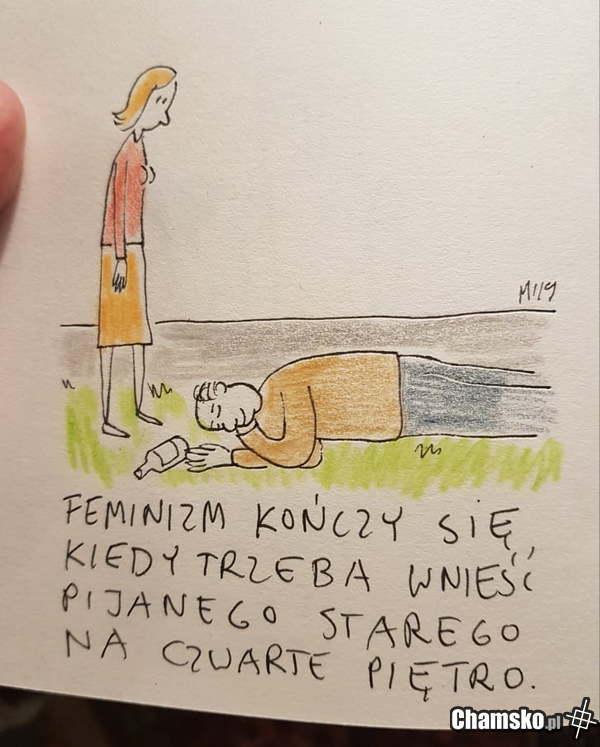 FEMINIZM KOŃCZY SIĘ,
KIEDY TRZEBA WNIEŚĆ
PIJANEGO STAREGO
NA CZWARTE PIĘTRO.
Chamsko.pl